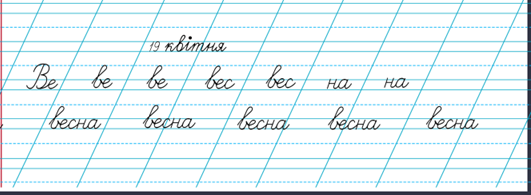 19 квітня
Ве ве ве вес вес на на
весна весна весна весна весна